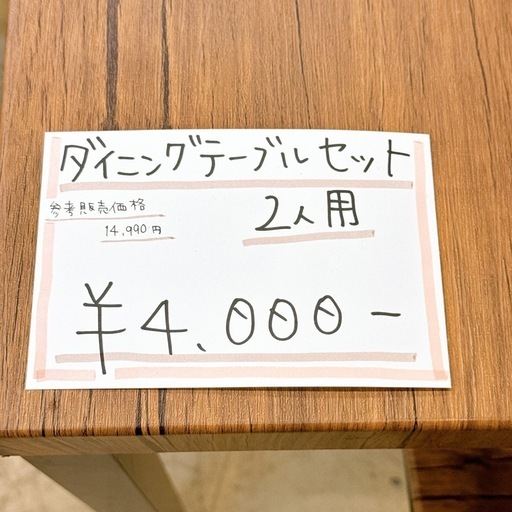 ダイニングテーブルセット
参考販売価格
14,990円
2人用
¥4,000-